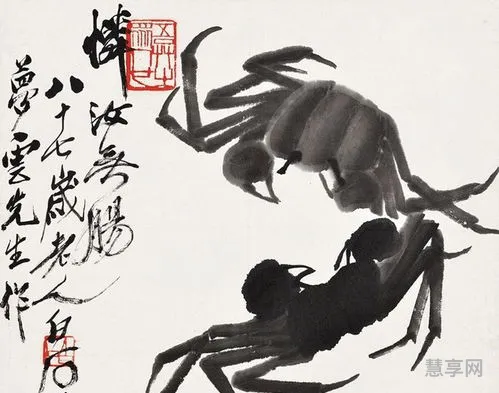 憐汝無腸
八十七歲老人白石
夢雲先生作
慧享网